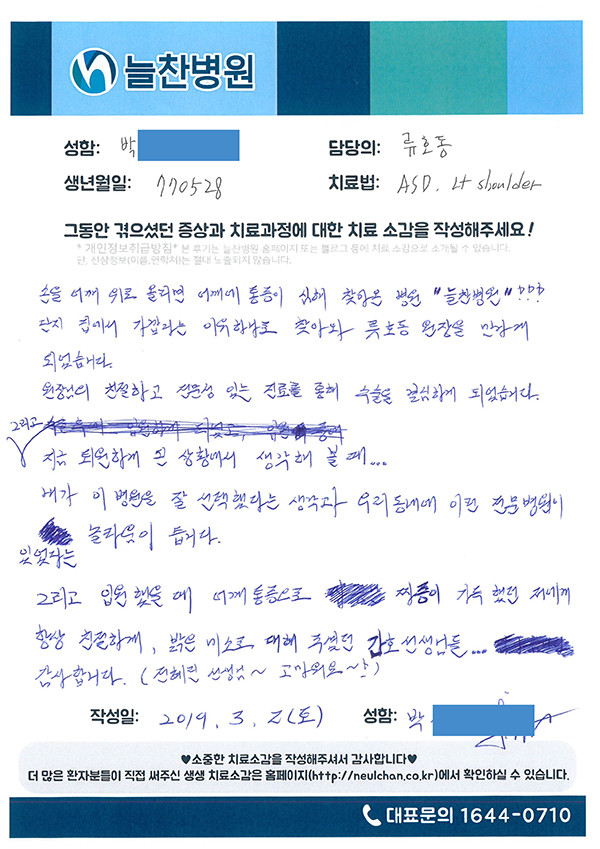 늘찬병원
성함: 박
담당의: 류호동
생년월일: 770528
치료법: ASD. Lt shoulder
그동안 겪으셨던 증상과 치료과정에 대한 치료 소감을 작성해주세요!
* 개인정보취급방침* 본 후기는 늘찬병원 홈페이지 또는 블로그 등에 치료 소감으로 소개될 수 있습니다.
단, 신상정보(이름,연락처)는 절대 노출되지 않습니다.
손을 어깨 위로 올리면 어깨에 통증이 심해 찾아온 병원 "늘찬병원"???
단지 집에서 가깝다는 이유하나로 찾아와 류호동 원장을 만나게
되었습니다.
원장님의 친절하고 전문성 있는 진료를 통해 수술을 결심하게 되었습니다.
그리고
지금 퇴원하게 된 상황에서 생각해 볼 때...
내가 이 병원을 잘 선택했다는 생각과 우리동네에 이런 전문병원이
있었다는 놀라움이 듭니다.
그리고 입원했을 때 어깨통증으로 짜증이 가득했던 저에게
항상 친절하게, 밝은 미소로 대해 주셨던 간호선생님들...
감사합니다. (전혜린 선생님~ 고마워요~!)
작성일: 2019. 3. 2(토) 성함: 박
♥소중한 치료소감을 작성해주셔서 감사합니다♥
더 많은 환자분들이 직접 써주신 생생 치료소감은 홈페이지(http://neulchan.co.kr)에서 확인하실 수 있습니다.
대표문의 1644-0710